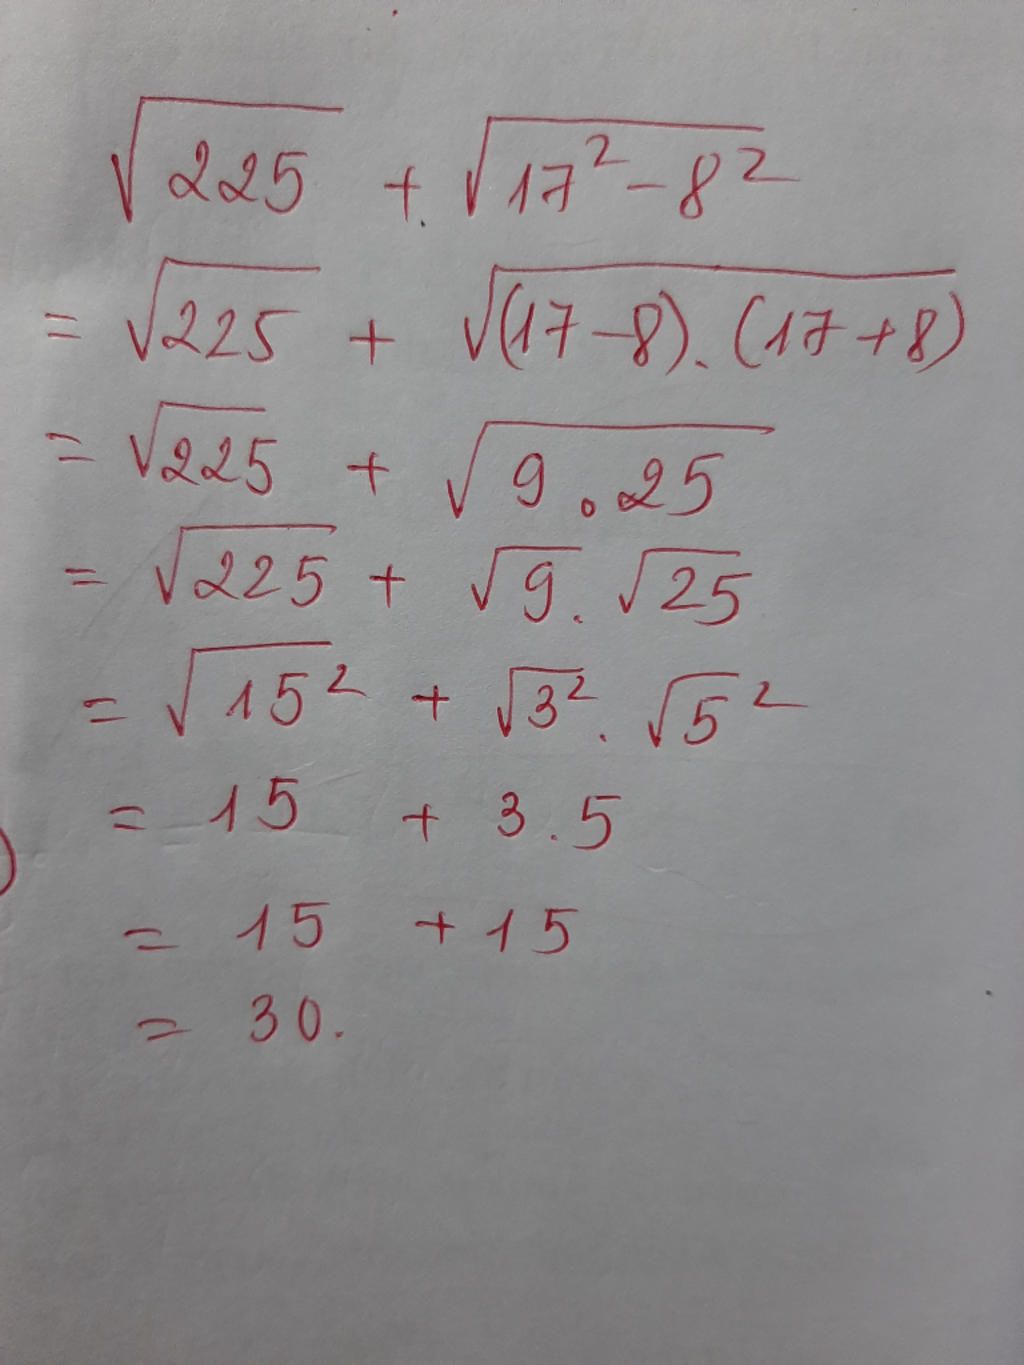 √225 + √17² - 8²
= √225 + √(17 - 8) . (17 + 8)
= √225 + √9 . 25
= √225 + √9 . √25
= √15² + √3² . √5²
= 15 + 3 . 5
= 15 + 15
= 30.